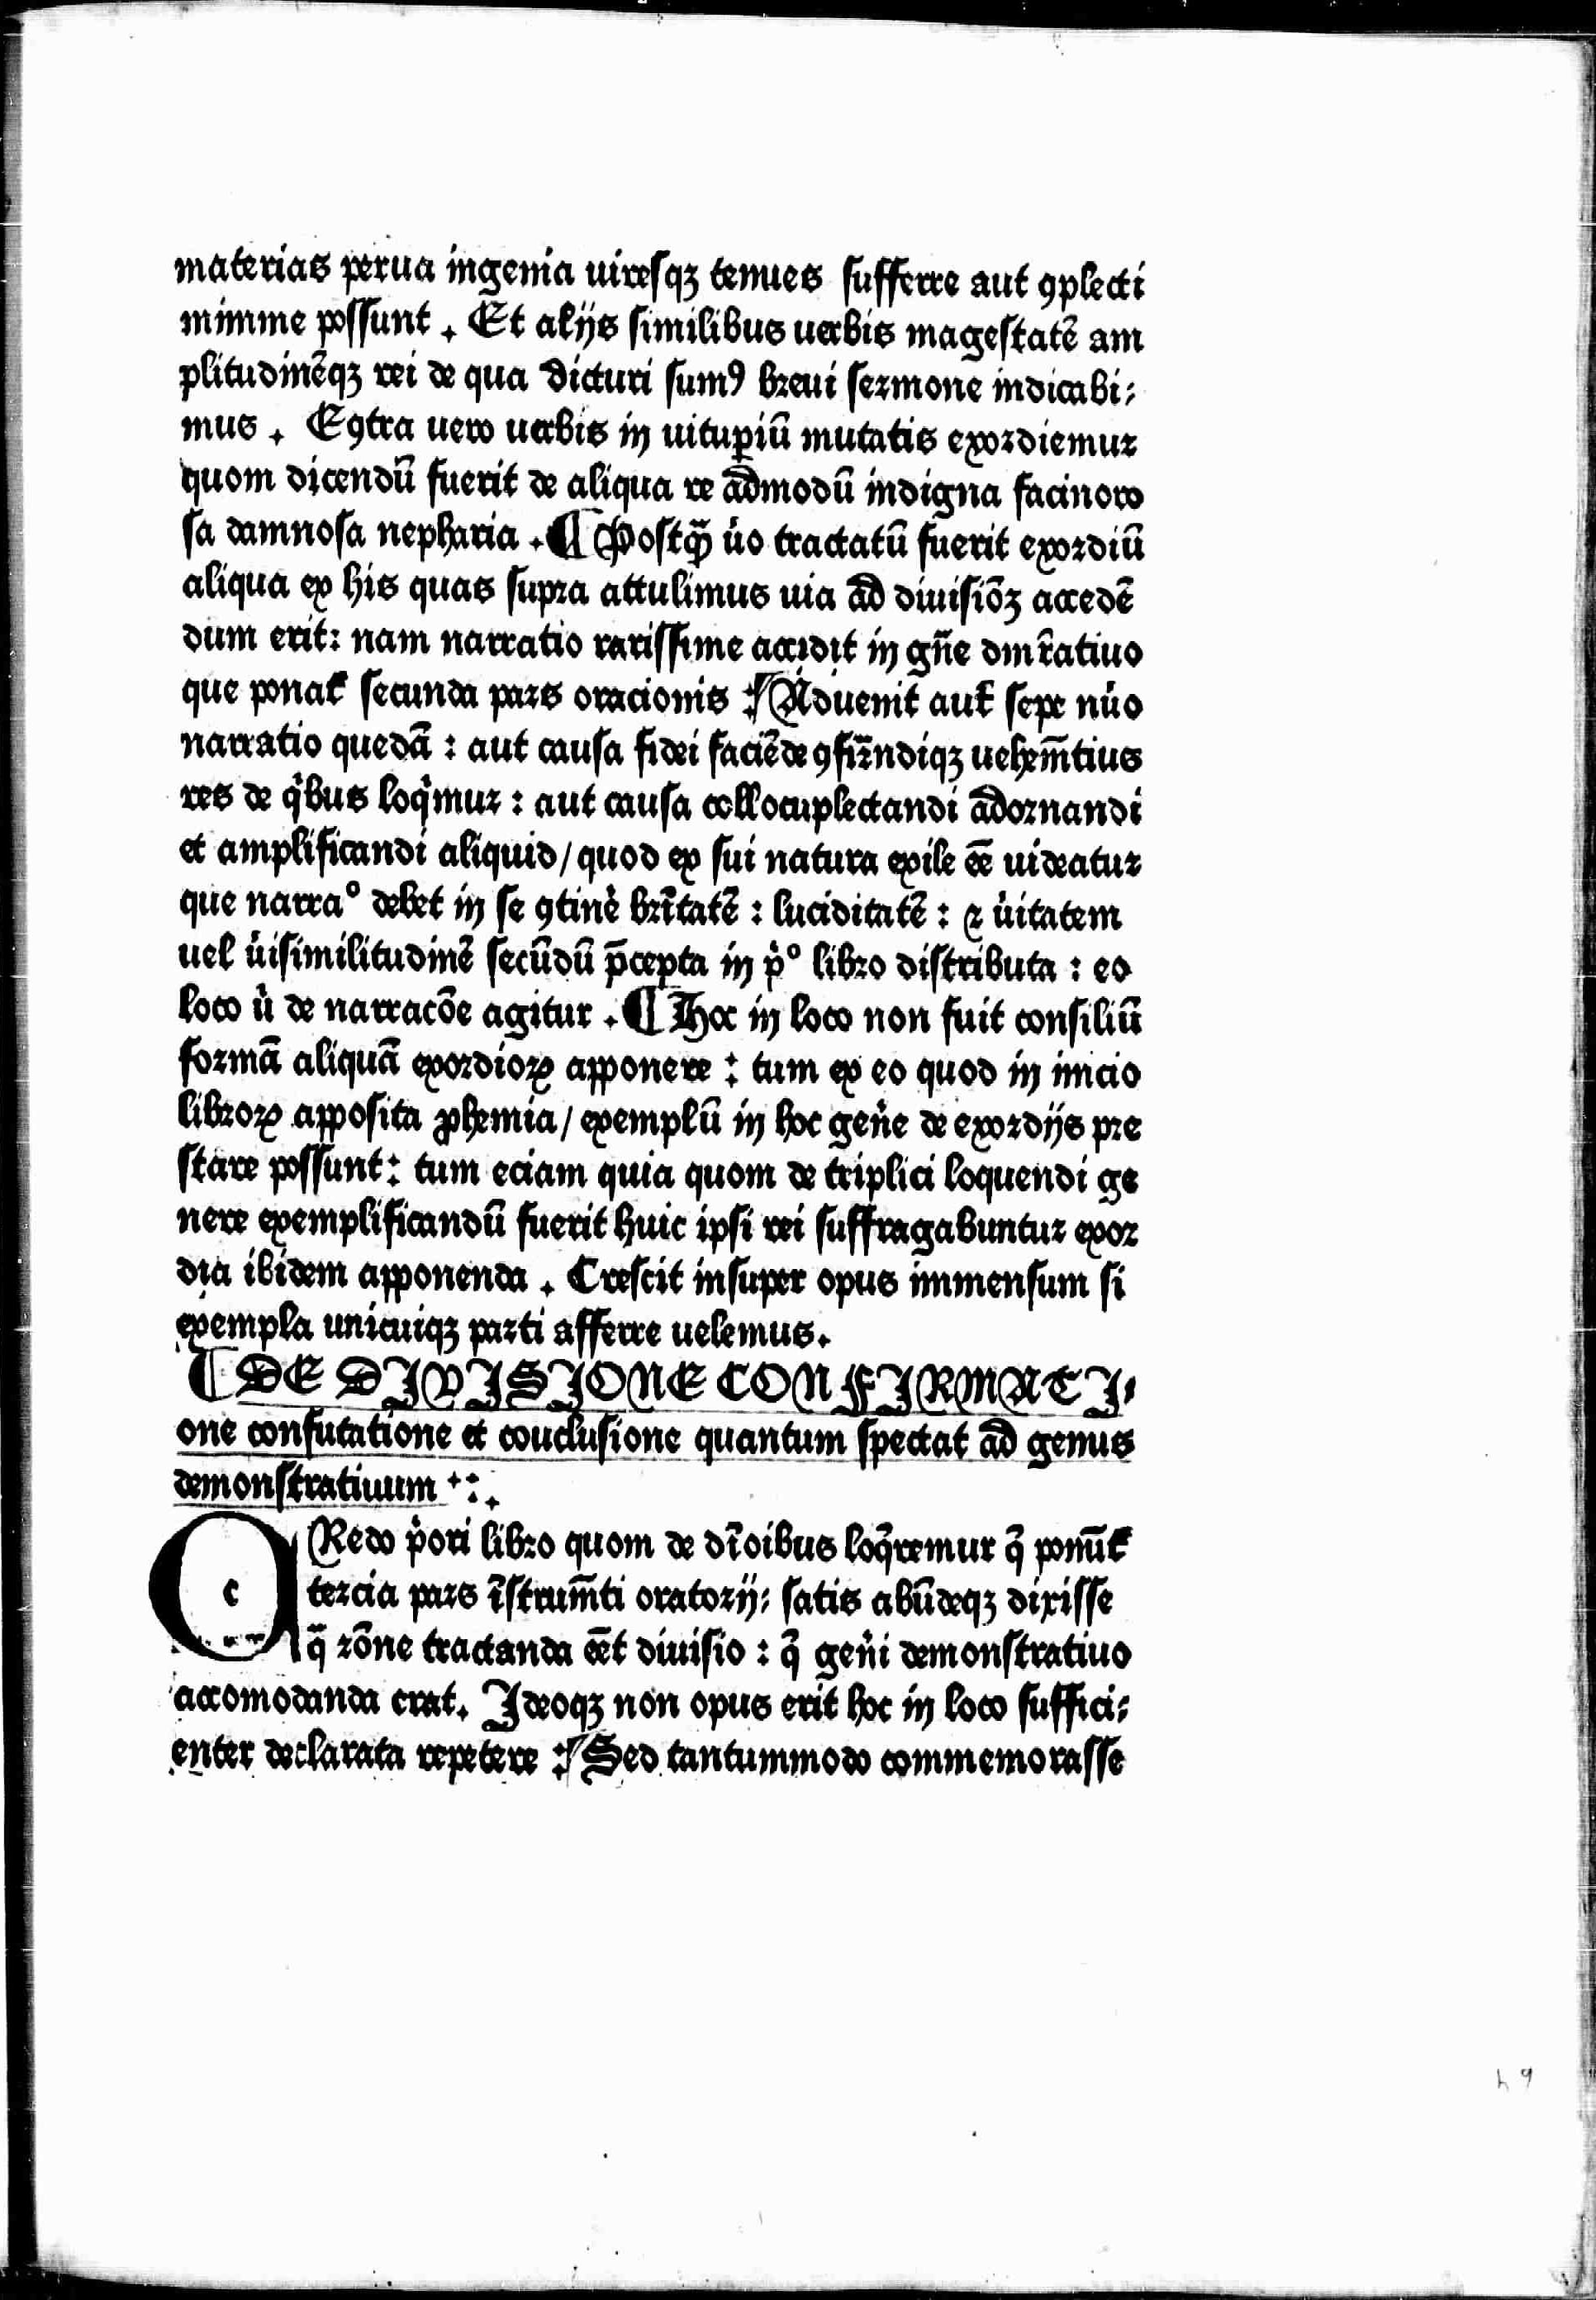 materias perua ingenia uiresqʒ tenues sufferre aut ꝯplecti
minime possunt . Et alijs similibus uerbis magestatē am
plitudinēqʒ rei de qua dicturi sumꝰ breui sermone indicabi⸗
mus . Eꝯtra uero uerbis in uituꝑiū mutatis exordiemur
quom dicendū fuerit de aliqua re admodū indigna facinoro
sa damnosa nepharia . ¶ Postꝙ̄ u̇o tractatū fuerit exordiū
aliqua ex his quas supra attulimus uia ad diuisiōʒ accedē
dum erit: nam narratio rarissime accidit in gn̄e dmr̄atiuo
que ponat᷑ secunda pars oracionis : Nōuenit aut᷑ sepe nu̇o
narratio quedā : aut causa fidei faciēde ꝯfirm̄ndiqʒ uehem̄tius
res de q̇bus loq̇mur : aut causa collocuplectandi adornandi
et amplificandi aliquid / quod ex sui natura exile eē uideatur
que narraº debet in se ꝯtinē brı̄tatē : luciditatē : ꝛ u̇itatem
uel u̇isimilitudinē secūdū p̄cepta in ṗº libro distributa : eo
loco u̇ de narracōe agitur . ¶ Hoc in loco non fuit consiliū
formā aliquā exordioꝝ apponere : tum ex eo quod in inicio
libroꝝ apposita ꝓhemia / exemplū in hoc geṅe de exordijs pre
stare possunt : tum eciam quia quom de triplici loquendi ge
nere exemplificandū fuerit huic ipsi rei suffragabuntur exor
dia ibidem apponenda . Crescit insuper opus immensum si
exempla unicuiqʒ parti afferre uelemus.
¶ DE DIVISIONE CONFIRMATI⸗
one confutatione et couclusione quantum spectat ad genus
demonstratiuum
c Redo ṗori libro quom de dr̄oibus loq̄remur q̄ ponūt᷑
tercia pars īstrum̄ti oratorij: satis abūdeqʒ dixisse
q̄ rōne tractanda eēt diuisio : q̄ geṅi demonstratiuo
accomodanda erat. Ideoqʒ non opus erit hoc in loco suffici⸗
enter declarata repetere : Sed tantummodo commemorasse